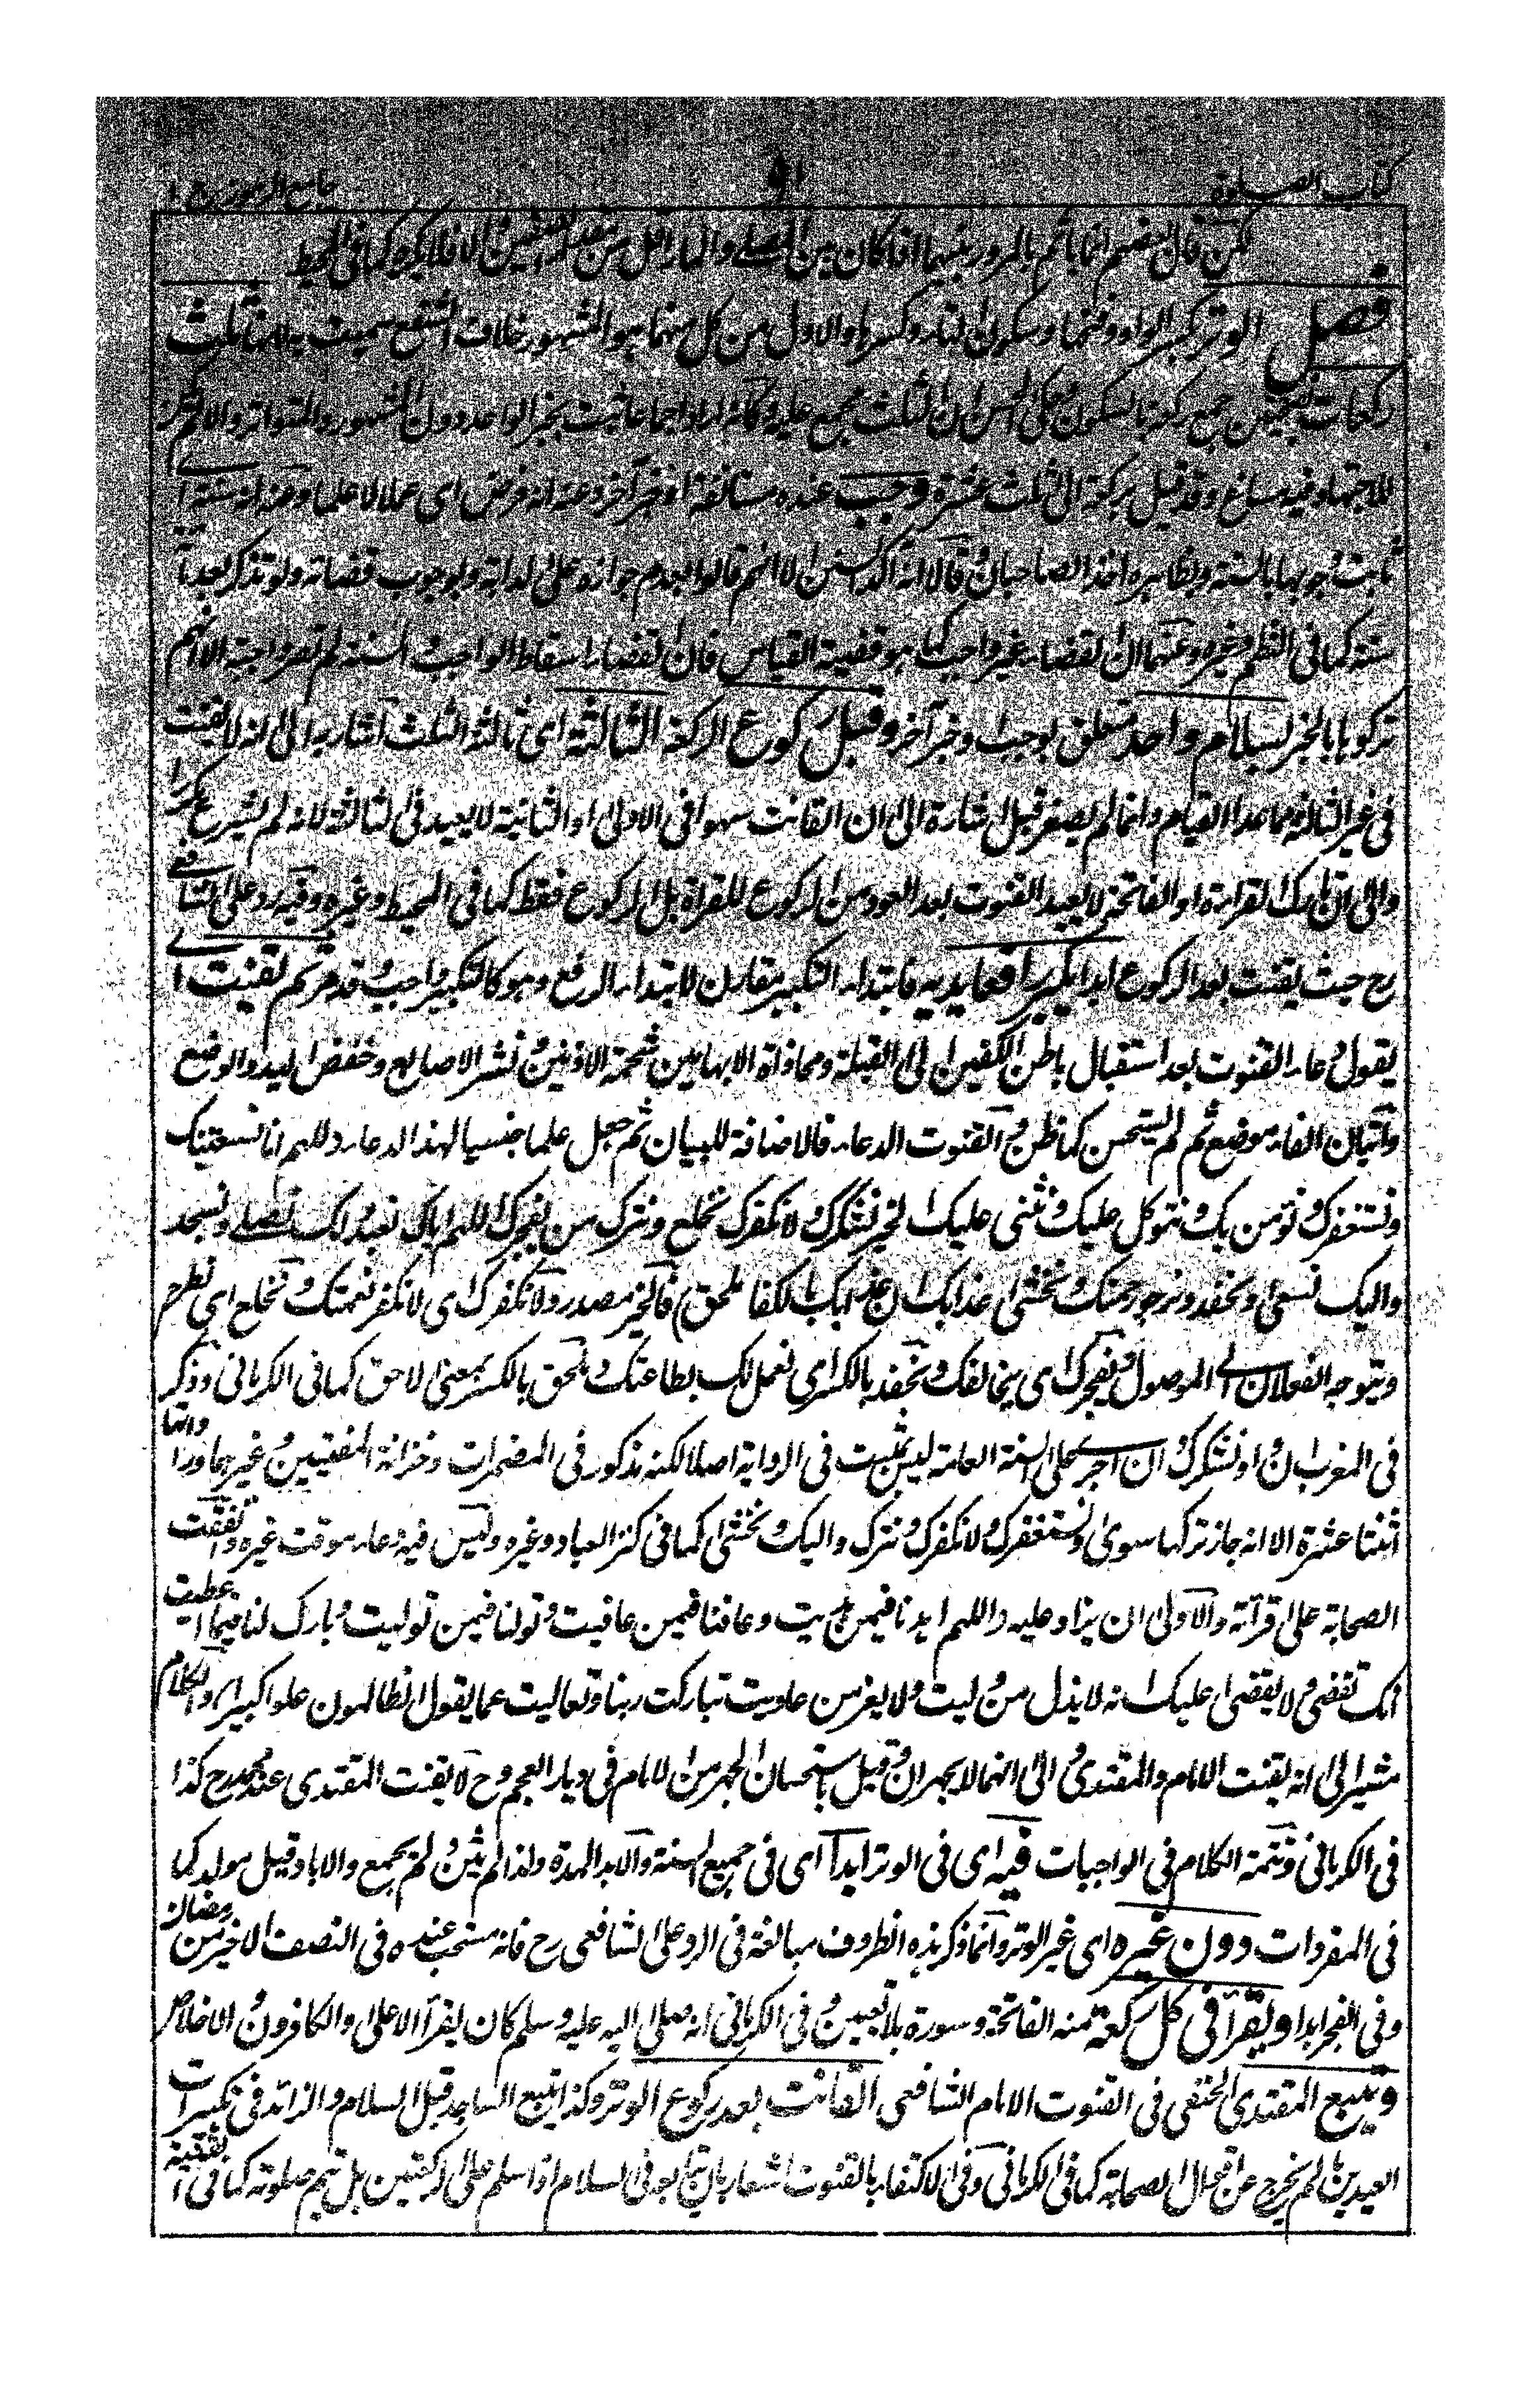 كتاب الصلوة ٩١ جامع الرموز ج ١
لكن قال بعضهم انما يأثم بالمرور بينهما اذا كان بين المصلي والمار اقل من مقدار الصفين والا فلا يكره كما في المحيط
فصل الوتر بكسر الواو وفتحها وسكون التاء وكسرها والاول من كل منهما هو المشهور خلاف الشفع سميت به لانها ثلث
ركعات بفتحتين جمع ركعة بالسكون وعلى الحسن ان الثلث مجمع عليه وكانه اراد اجماعا ثبت بخبر الواحد دون المشهور والمتواتر والا لم يكن
للاجتهاد فيه مساغ وقد قيل بركعة الى ثلث عشرة وجب عنده مستانفة او خبر آخر وعنه انه فرض اي عملا لا علما وعنه انه سنة اي
ثابت وجوبها بالسنة وبظاهره اخذ الصاحبان وقالا انه آكد السنن الا انهم قالوا بعدم جوازه على الدابة وبوجوب قضائه ولو تذكر بعد
سنة كما في النظم وغيره وعنهما ان القضاء غير واجب كما هو قضية القياس فان القضاء اسقاط الواجب والسنة لم تصر واجبة الا انهم
تركوها بالخبر بسلام واحد متعلق بوجب او خبر آخر وقبل ركوع الركعة الثالثة اي ثالثة الثلث اشار به الى انه لا يقنت
في غير الثالثة مما عدا القيام وانما لم يصغر قبل اشارة الى ان القانت سهوا في الاولى او الثانية لا يعيد في الثالثة لانه لم يشرع مكررا
والى ان تارك القراءة او الفاتحة لا يعيد القنوت بعد العود من الركوع للقراءة بل الركوع فقط كما في المحيط وغيره وفيه رد على الشافعي
رح حيث يقنت بعد الركوع ابدا يكبر رافعا يديه فابتداء التكبير مقارن لابتداء الرفع وهو كالتكبير واجب وقد مر ثم يقنت اي
يقول دعاء القنوت بعد استقبال باطن الكفين الى القبلة ومحاذاة الابهامين شحمة الاذنين ونشر الاصابع وخفض اليد والوضع
واتيان الفاء موضع ثم لم يستحسن كما ظن والقنوت الدعاء فالاضافة للبيان ثم جعل علما جنسيا لهذا الدعاء (اللهم انا نستعينك
ونستغفرك ونؤمن بك ونتوكل عليك ونثني عليك الخير نشكرك ولا نكفرك نخلع ونترك من يفجرك اللهم اياك نعبد ولك نصلي ونسجد
واليك نسعى ونحفد ونرجو رحمتك ونخشى عذابك ان عذابك بالكفار ملحق) فالخير مصدر ولا نكفرك اي لا نكفر نعمتك ونخلع اي نطرح
ويتوجه الفعلان الى الموصول ويفجرك اي يخالفك ونحفد بالكسر اي نعمل لك بطاعتك وملحق بالكسر بمعنى لاحق كما في الكرماني وذكر
في المغرب ان او نشكرك ان اجري على السنة العامة ليس بثبت في الرواية اصلا لكنه مذكور في المضمرات وخزانة المفتيين وغيرهما وواوا
اثنتا عشرة الا انه جاز تركها سوى ونستغفرك ولا نكفرك ونترك واليك ونخشى كما في كنز العباد وغيره وليس فيه دعاء موقت غيره واتفقت
الصحابة على قرآءته والاولى ان يزاد عليه (اللهم اهدنا فيمن هديت وعافنا فيمن عافيت وتولنا فيمن توليت وبارك لنا فيما اعطيت
انك تقضي ولا يقضى عليك انه لا يذل من وليت ولا يعز من عاديت تباركت ربنا وتعاليت عما يقول الظالمون علوا كبيرا) والكلام
مشير الى انه يقنت الامام والمقتدي والى انهما لا يجهران وقيل باستحسان الجهر من الامام في ديار العجم وح لا يقنت المقتدي عند محمد رح كذا
في الكرماني وتتمة الكلام في الواجبات فيه اي في الوتر ابدا اي في جميع السنة والابد المدة ولذا لم يثن ولم يجمع والاباد قيل مولد كما
في المفردات دون غيره اي غير الوتر وانما ذكر هذه الظروف مبالغة في الرد على الشافعي رح فانه مستحب عنده في النصف الاخير من رمضان
وفي الفجر ابدا ويقرأ في كل ركعة منه الفاتحة وسورة بلا تعيين وفي الكرماني انه صلى الله عليه وسلم كان يقرأ الاعلى والكافرون والاخلاص
ويتبع المقتدي الحنفي في القنوت الامام الشافعي القانت بعد ركوع الوتر وكذا يتبع الساجد قبل السلام والزائد في تكبيرات
العيدين ما لم يخرج عن اقوال الصحابة كما في الكرماني وفي الاكتفاء بالقنوت اشعار بان لا يتابعه في السلام اذا سلم على الركعتين بل يتم صلوته كما في القنية